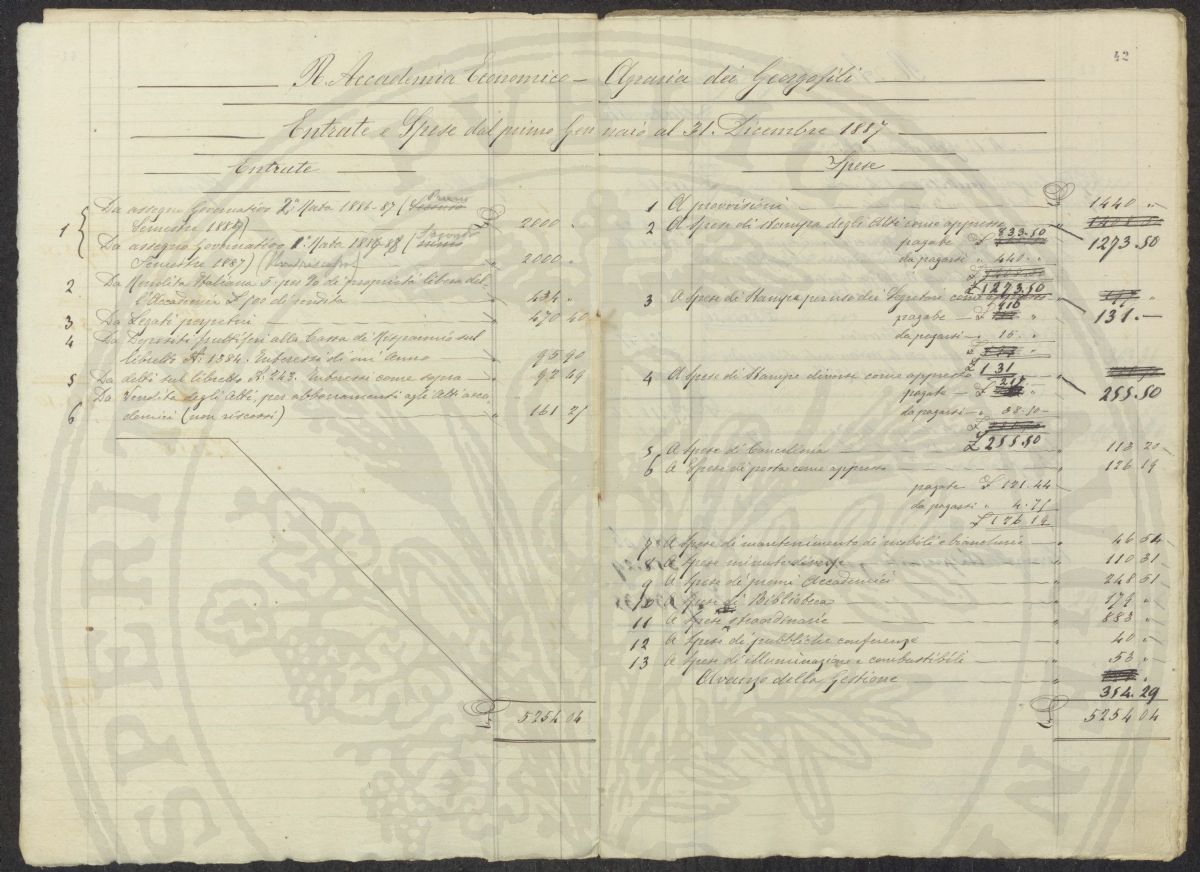 42
R. Accademia Economico-Agraria dei Georgofili
Entrate e Spese dal primo Gennaio al 31. Dicembre 1887
Entrate
1 Da assegno Governativo 2a Rata 1886-87 (Primo
Semestre 1887) £ 2000 "
Da assegno Governativo 1a Rata 1887-88 (Secondo
Semestre 1887) " 2000 "
2 Da Rendita Italiana 5. per % di proprietà libera del
l'Accademia £ 500 di rendita " 434 "
3 Da Legati perpetui " 470 40
4 Da Depositi fruttiferi alla Cassa di Risparmio sul
libretto N. 1384. Interessi di un Anno " 95 90
5 Da detti sul libretto N. 243. Interessi come sopra " 92 49
6 Da Vendita degli Atti, per abbonamenti agli Atti acca
demici (non riscossi) " 161 25
£ 5254 04
Spese
1 A provvisioni £ 1440 "
2 A Spese di Stampa degli Atti come appresso 1273.50
pagate £ 833.50
da pagarsi " 440 "
£ 1273.50
3 A Spese di Stampa per uso dei Segretari come appresso 131.-
pagate £ 116 "
da pagarsi " 15 "
£ 131
4 A Spese di Stampe diverse come appresso 255.50
pagate £ 217
da pagarsi " 38.50
£ 255.50
5 A Spese di Cancelleria " 113 20
6 A Spese di posta come appresso " 126 19
pagate £ 121.44
da pagarsi " 4.75
£ 126 19
7 A Spese di mantenimento di mobili e biancherie " 46 54
8 A Spese minute diverse " 110 31
9 A Spese di premi Accademici " 248 51
10 A Spese di Biblioteca " 179 "
11 A Spese straordinarie " 883 "
12 A Spese di pubbliche conferenze " 40 "
13 A Spese di illuminazione e combustibili " 53 "
Avanzo della Gestione 354.29
£ 5254 04